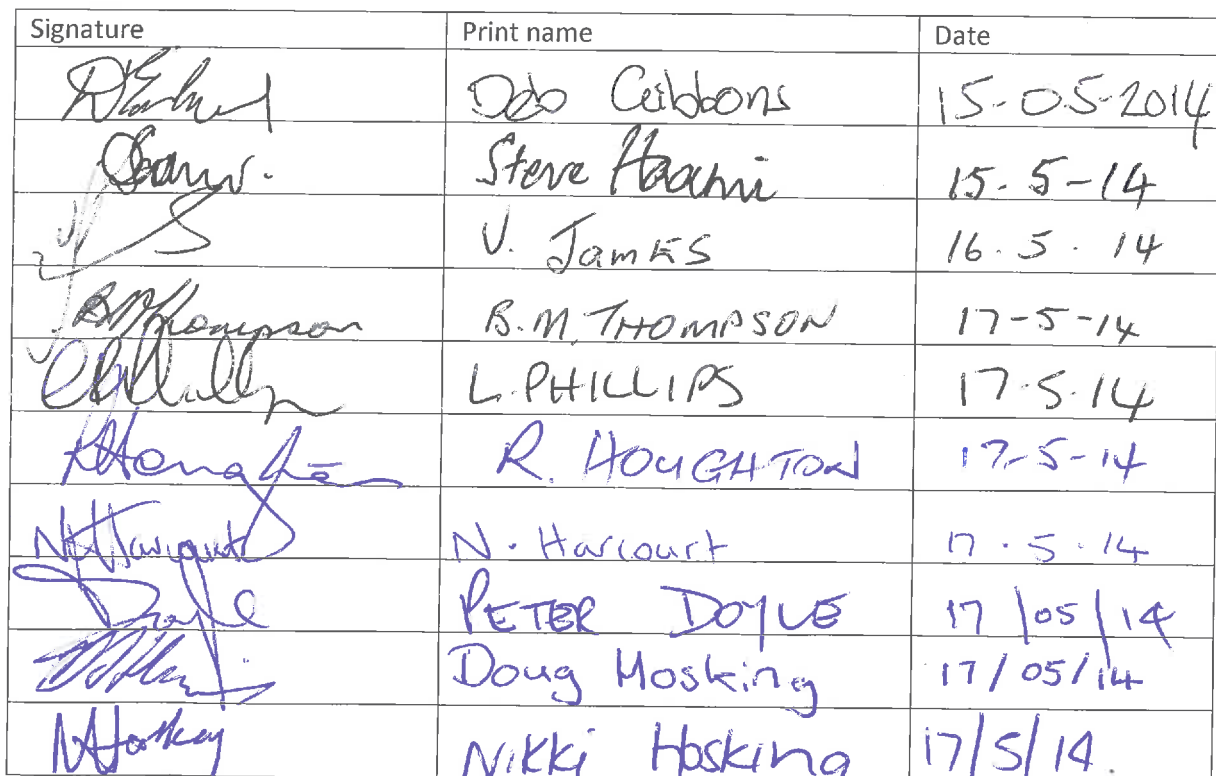 Signature Print name Date
Deb Gibbons 15-05-2014
Steve 15.5-14
V. James 16.5.14
B.M.Thompson B.M. THOMPSON 17-5-14
L. PHILLIPS 17.5.14
R. HOUGHTON 17-5-14
N. Harcourt 17.5.14
Doyle PETER DOYLE 17/05/14
Doug Hosking 17/05/14
Nikki Hosking 17/5/14